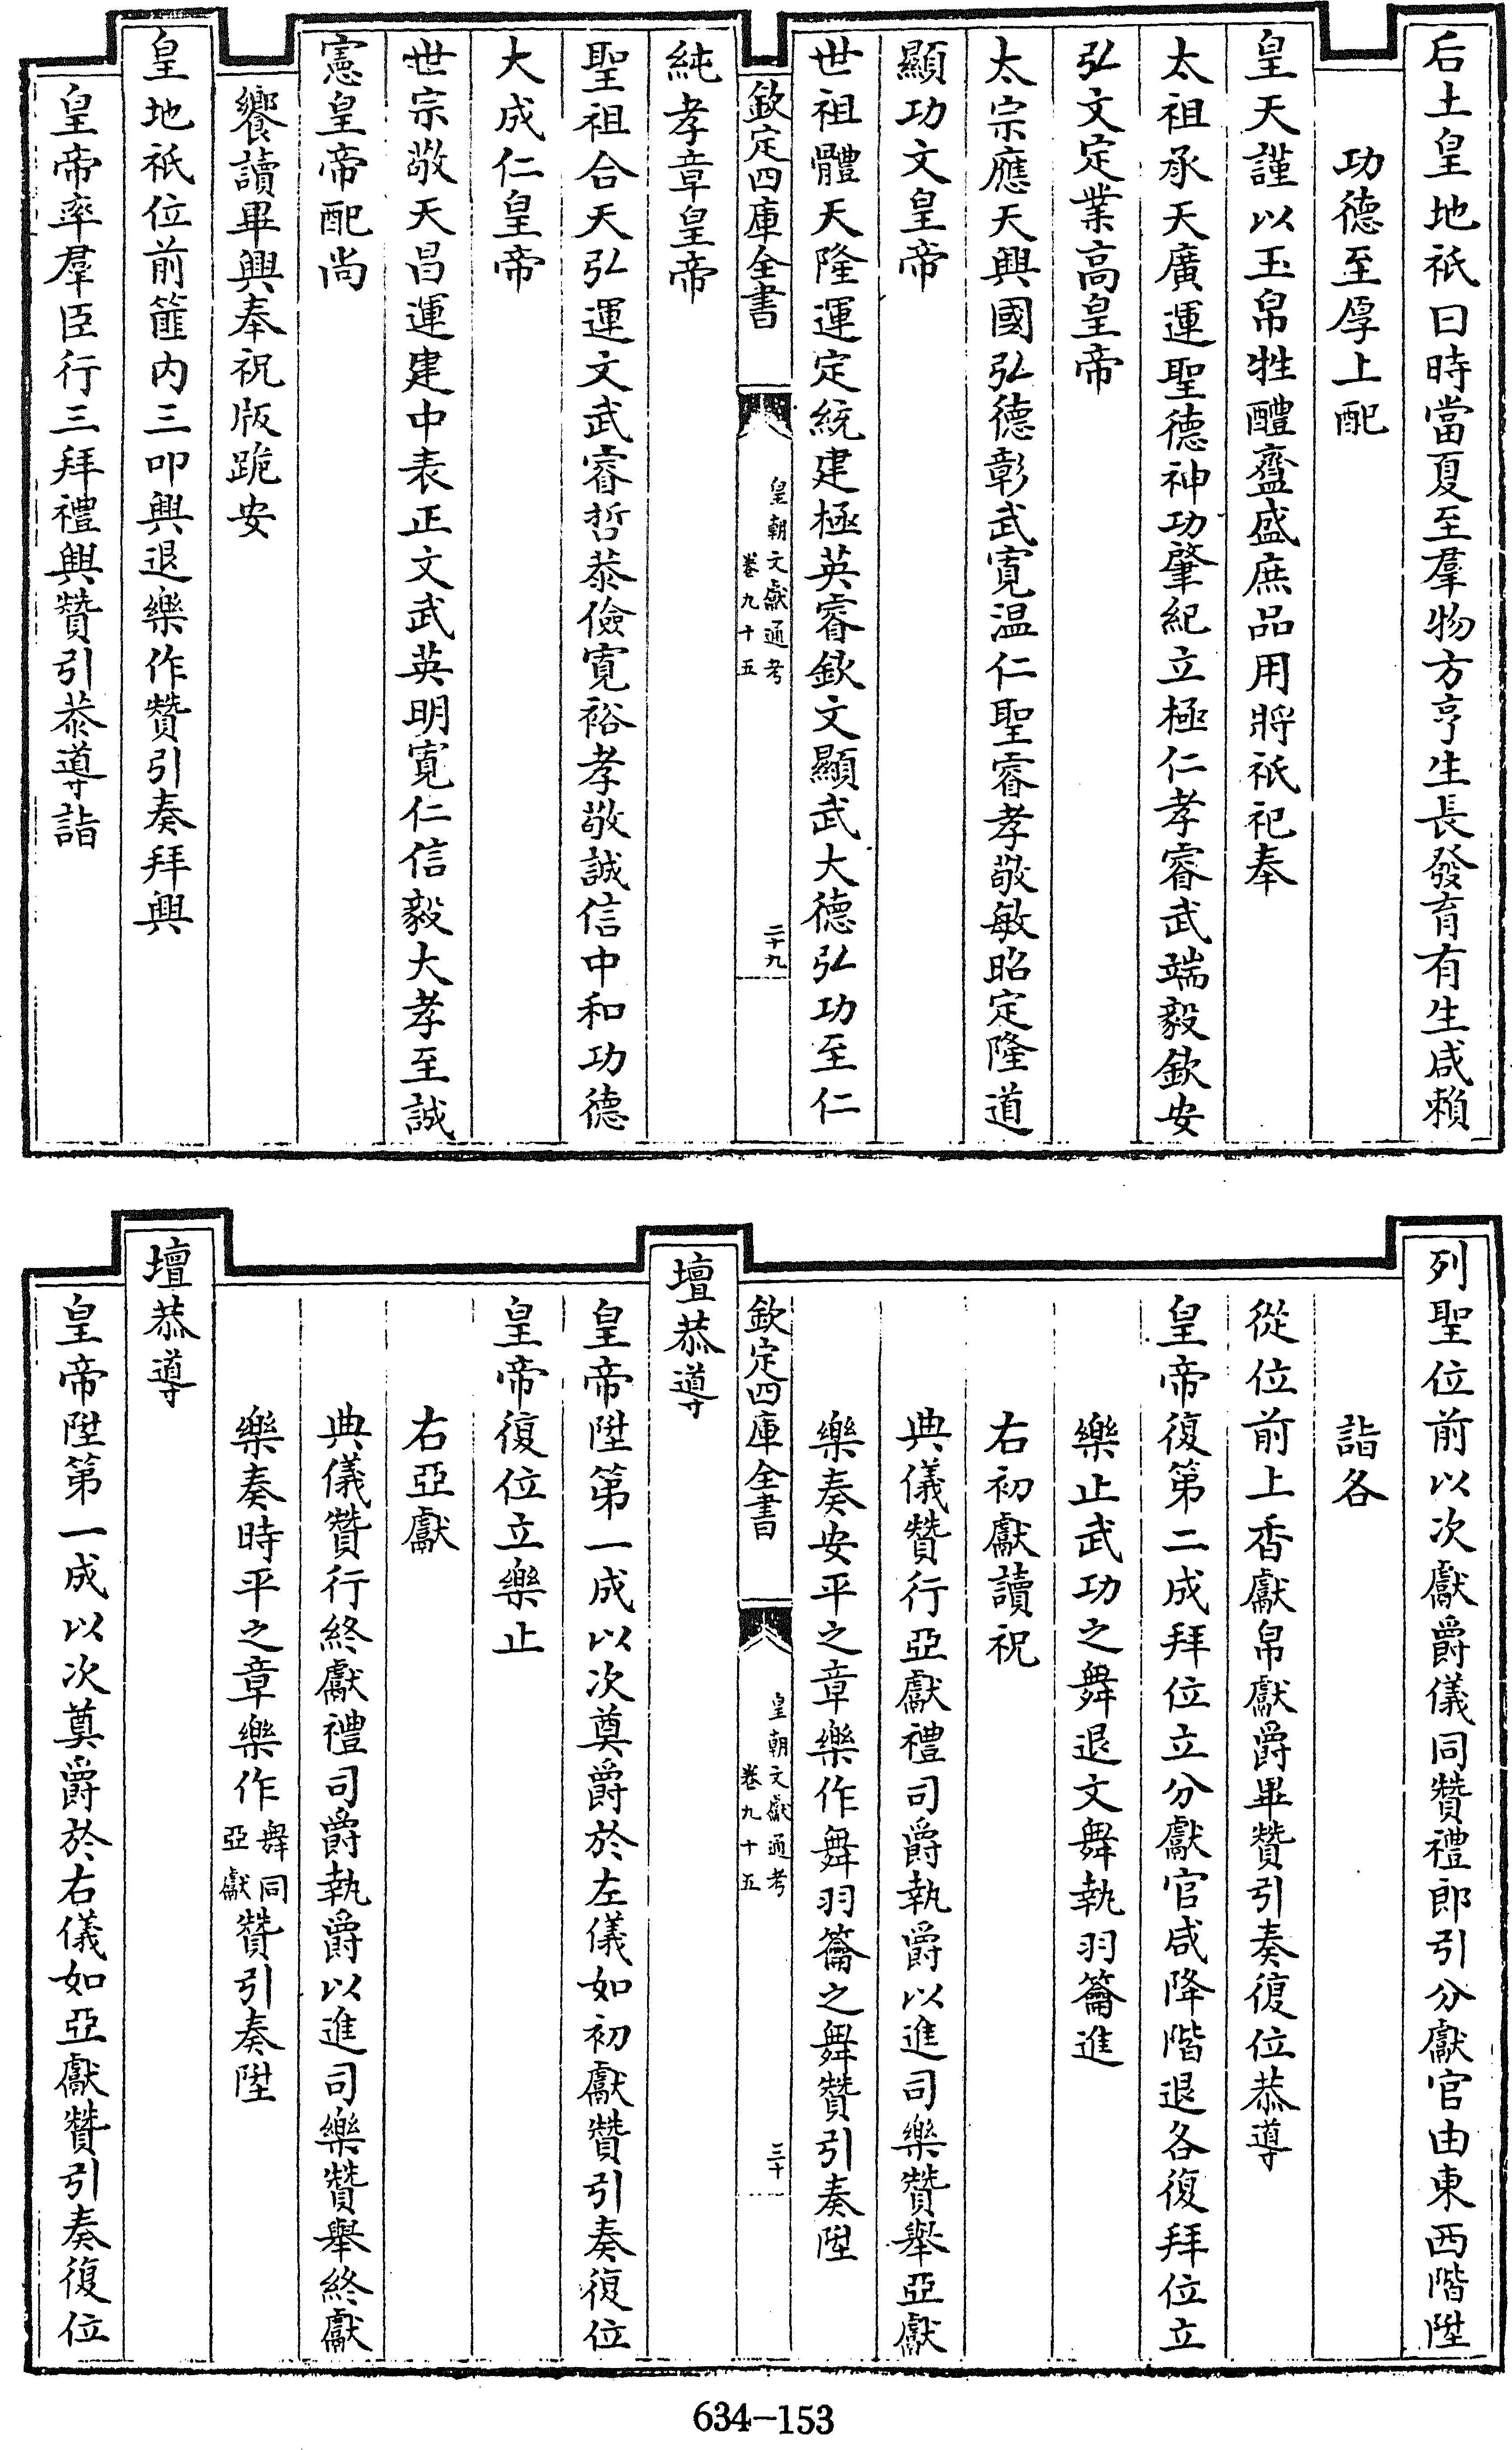 后土皇地祇曰時當夏至羣物方亨生長發育有生咸賴
功德至厚上配
皇天謹以玉帛牲醴齍盛庶品用將祇祀奉
太祖承天廣運聖德神功肇紀立極仁孝睿武端毅欽安
弘文定業高皇帝
太宗應天興國弘德彰武寬温仁聖睿孝敬敏昭定隆道
顯功文皇帝
世祖體天隆運定統建極英睿欽文顯武大德弘功至仁
欽定四庫全書
皇朝文獻通考
卷九十五
二十九
純孝章皇帝
聖祖合天弘運文武睿哲恭儉寬裕孝敬誠信中和功德
大成仁皇帝
世宗敬天昌運建中表正文武英明寬仁信毅大孝至誠
憲皇帝配尚
饗讀畢興奉祝版跪安
皇地祇位前篚内三叩興退樂作贊引奏拜興
皇帝率羣臣行三拜禮興贊引恭導詣
列聖位前以次獻爵儀同贊禮郎引分獻官由東西階陞
詣各
從位前上香獻帛獻爵畢贊引奏復位恭導
皇帝復第二成拜位立分獻官咸降階退各復拜位立
樂止武功之舞退文舞執羽籥進
右初獻讀祝
典儀贊行亞獻禮司爵執爵以進司樂贊舉亞獻
樂奏安平之章樂作舞羽籥之舞贊引奏陞
欽定四庫全書
皇朝文獻通考
卷九十五
三十
壇恭導
皇帝陞第一成以次奠爵於左儀如初獻贊引奏復位
皇帝復位立樂止
右亞獻
典儀贊行終獻禮司爵執爵以進司樂贊舉終獻
樂奏時平之章樂作舞同亞獻贊引奏陞
壇恭導
皇帝陞第一成以次奠爵於右儀如亞獻贊引奏復位
634-153